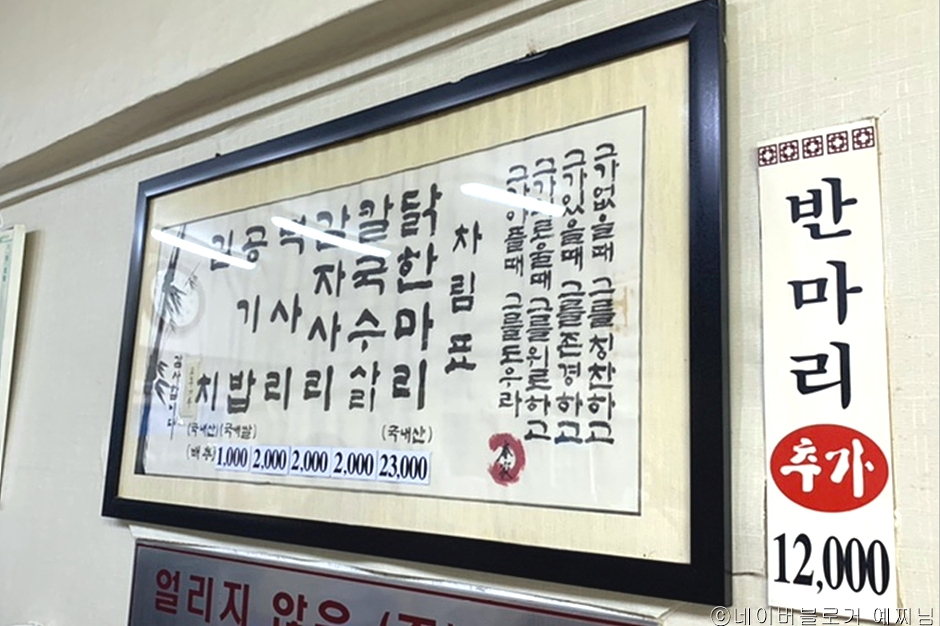 그가없을때 그를칭찬하고
그가있을때 그를존경하고
그가 그를위로하고
그가아플때 그를도우라
차림표
닭한마리 (국내산) 23,000
칼국수사리 2,000
감자사리 2,000
떡사리 2,000
공기밥 (국내쌀) 1,000
김치 (국내산)
(배추)
반마리
추가
12,000
얼리지 않은
ⓒ네이버블로거 예찌님